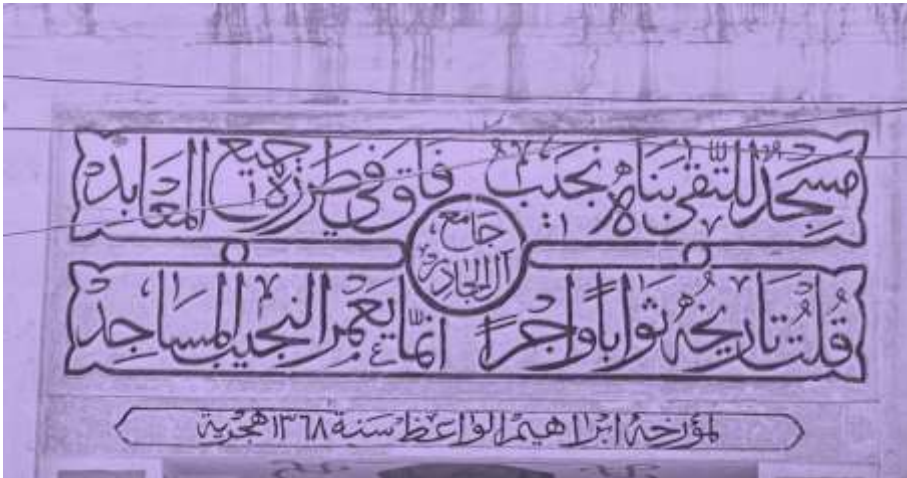 مسجد للتقى بناه نجيب فاق في طرزه جميع المعابد
جامع
آل الجادر
قلت تاريخه ثواباً وأجراً إنما يعمر النجيب المساجد
لمؤرخه ابراهيم الواعظ سنة ١٣٦٨ هجرية